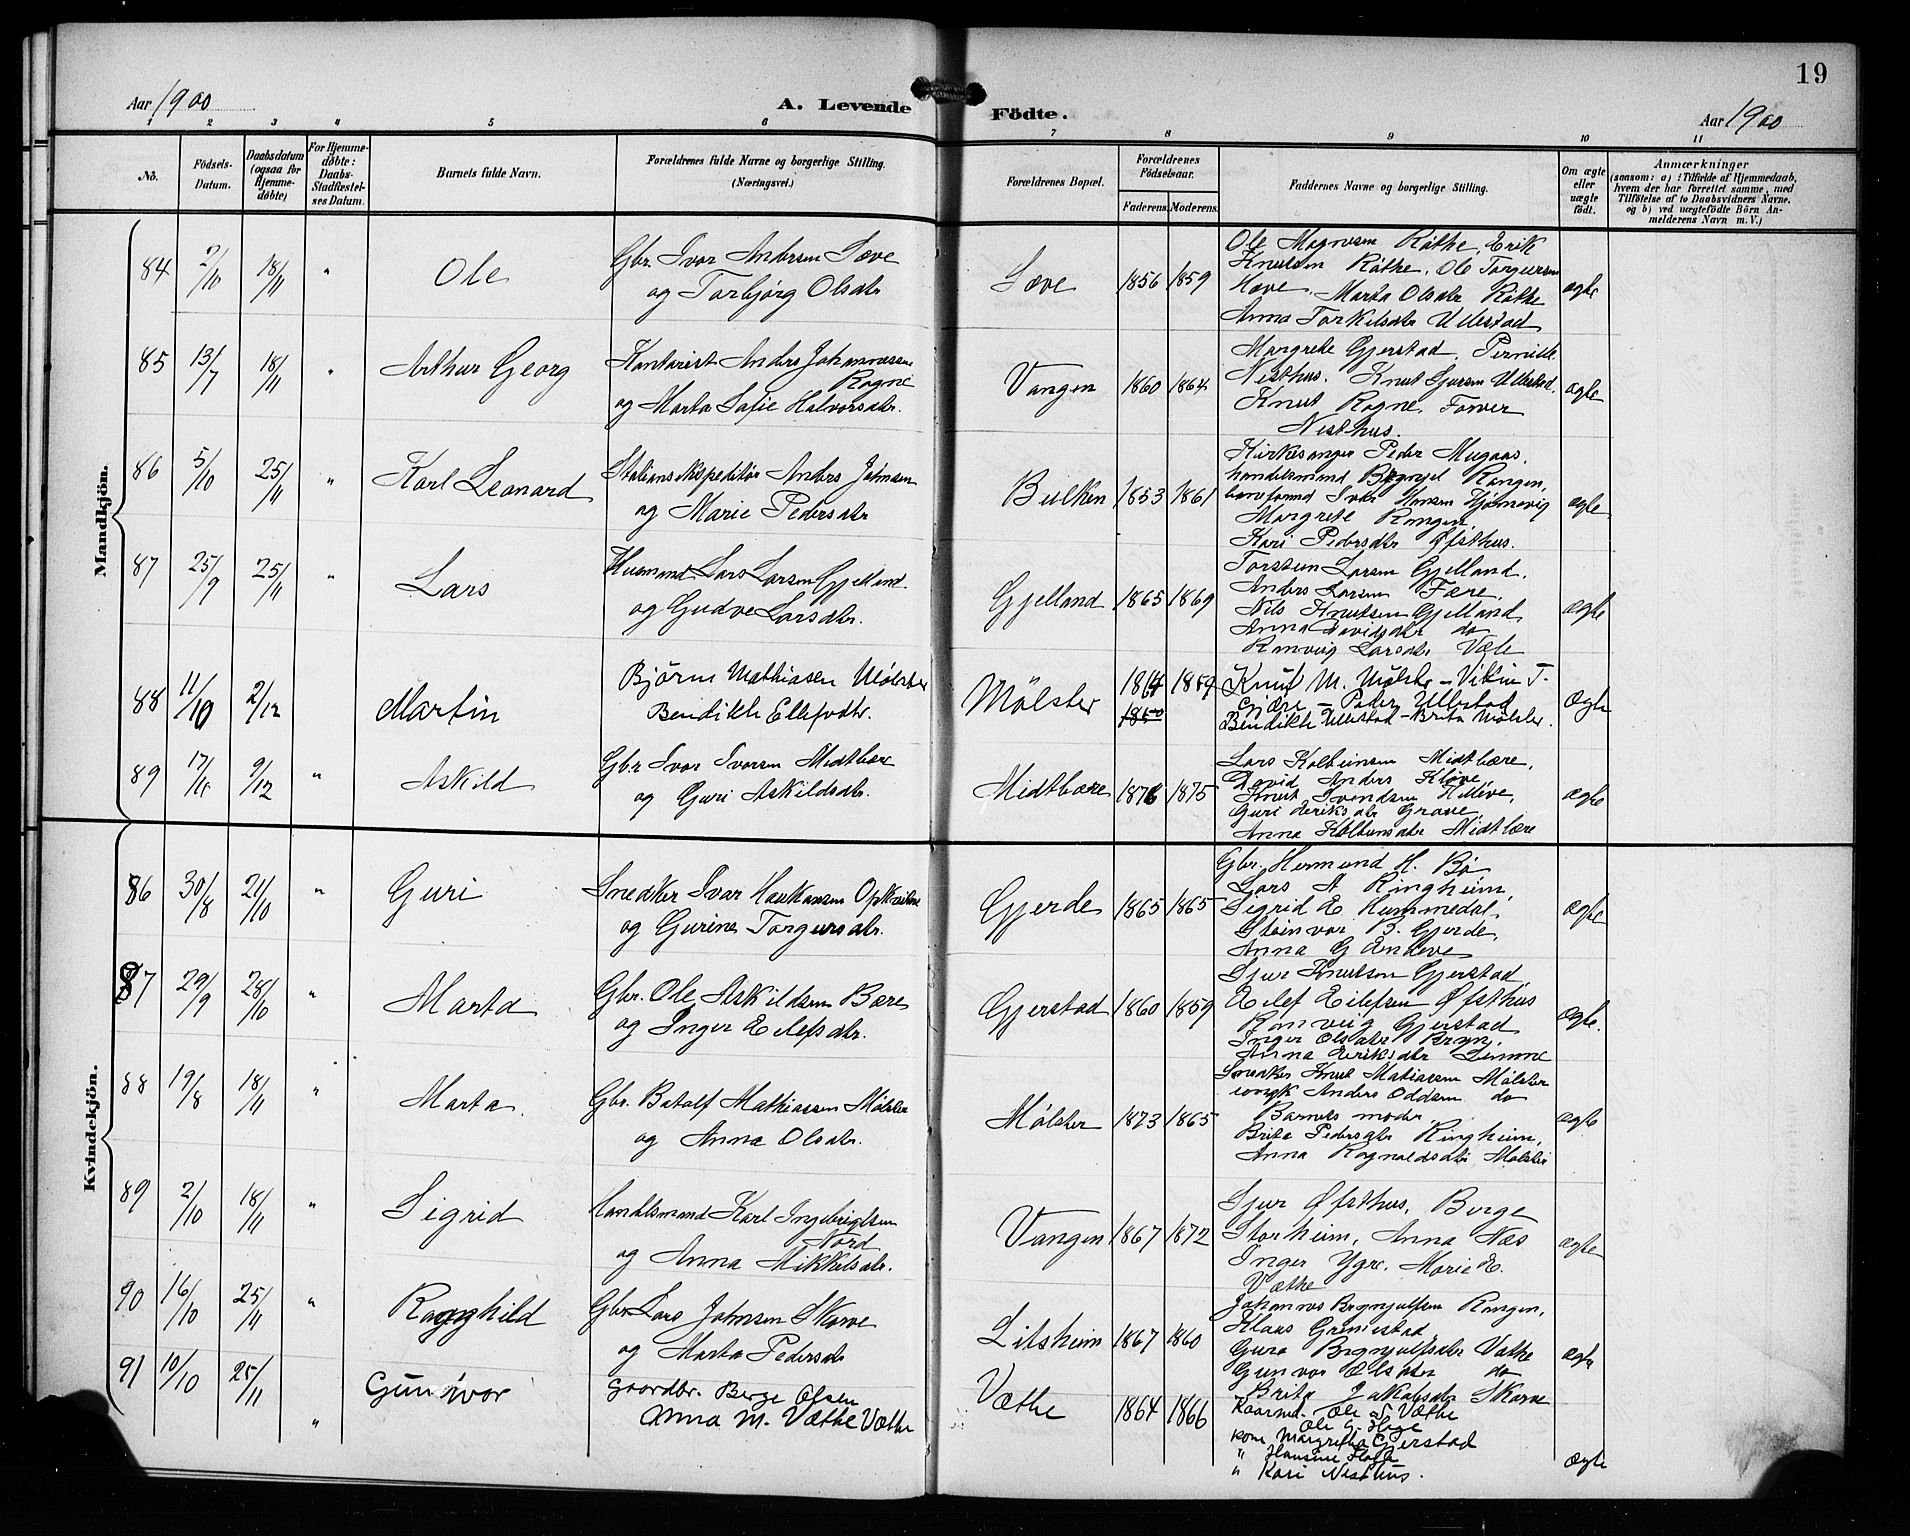 19
Aar 1900
A. Levende Födte.
Aar 1900
1 2 3 4 5 6 7 8 9 10 11
No.
Födsels-Datum.
Daabsdatum (ogsaa for Hjemme-døbte)
For Hjemme-døbte: Daabs-Stadfæstel-ses Datum.
Barnets fulde Navn.
Forældrenes fulde Navne og borgerlige Stilling.
(Næringsvei.)
Forældrenes Bopæl.
Forældrenes Födselsaar.
Faderens. Moderens.
Faddernes Navne og borgerlige Stilling.
Om ægte eller uægte födt.
Anmærkninger
(saasom: a) i Tilfælde af Hjemmedaab,
hvem der har forrettet samme, med
Tilföielse af to Daabsvidners Navne.
og b) ved uægtefödte Börn An-
melderens Navn m. V.)
Mandkjön.
84 2/10 18/11 " Ole Gbr. Ivar Andersen Sæve
og Torbjørg Olsdtr.
Sæve 1856 1859
Ole Magnesen Røthe, Erik
Knutsen Røthe, Ole Torgersen
Hæve, Marta Olsdtr Røthe
Anna Torkilsdtr Ullestad
ægte
85 13/7 18/11 " Arthur Georg Kontorist Anders Johannessen
Rogne
og Marta Sofie Halvorsdtr.
Vangen 1860 1864
Margrete Gjerstad, Pernille
Nesthus. Knut Sjursen Ullestad.
Knut Rogne, Farver
Nesthus.
ægte
86 5/10 25/11 " Karl Leonard Stationsekspeditør Anders Johnsen
og Marie Pedersdtr
Bulken 1853 1861
Kirkesanger Peder Mugaas,
handelsmand Brynjel Rongen,
baneformand Ivar Hjørnevig
Margrete Rongen,
Kari Pedersdtr Øfsthus.
ægte
87 25/9 25/11 " Lars Husmand Lars Larsen Gjelland
og Gudve Larsdtr.
Gjelland 1865 1869
Torstein Larsen Gjelland,
Anders Larsen Fære,
Nils Knutsen Gjelland
Anna Davidsdtr do
Ranveig Larsdtr Væle
ægte
88 11/10 2/12 Martin Björn Mathiasen Mölster
Bendikte Ellefsdtr.
Mölster 1864 1859
1850
Knut M. Mölster - T.
Gjære - Peder Ullestad
Bendikte Ullestad - Brita Mölster.
Ægte
89 17/11 9/12 " Askild Gbr Ivar Ivarsen Midtbære
og Guri Askildsdtr.
Midtbære 1876 1875
Lars Kolbeinsen Midtbære,
David Anders Kløve,
Knut Svendsen Hilleve,
Guri Eriksdtr Grove,
Anna Kolbensdtr Midtbære
ægte
Kvindekjön.
86 30/8 21/10 " Guri Snedker Ivar Haukansen
og Gurine Torgersdtr.
Gjerde 1865 1865
Gbr. Hermund H. Bø
Lars A Ringheim,
Sigrid E. Hummedal,
Steinvor B. Gjerde,
Anna G Endeve
ægte
87 29/9 28/10 " Marta Gbr. Ole Askildsen Bære
og Inger Eilefsdtr.
Gjerstad 1860 1859
Sjur Knutsen Gjerstad,
Eilef Eilefsen Øfsthus
Ranveig Gjerstad
Inger Olsdtr Bryn,
Anna Eriksdtr Lemme
ægte.
88 19/8 18/11 " Marta. Gbr. Botolf Mathiassen Mølster
og Anna Olsdtr.
Mølster 1873 1865
Snedker Knut Matiassen Mølster
ungk Anders Oddsen do
Barnets moder
Brita Pedersdtr Ringheim,
Anna Rognaldsdtr Mølster
ægte
89 2/10 18/11 " Sigrid Handelsmand Karl Ingebrigtsen
Nord
og Anna Mikkelsdtr.
Vangen 1867 1872
Sjur Øfsthus, Berge
Storheim, Anna Næs
Inger Ygre, Marie E.
Væthe
ægte
90 16/10 25/11 " Ragnhild Gbr. Lars Johnsen Skorve
og Marta Pedersdtr
Litsheim 1867 1860
Johannes Brynjulfsen Rongen,
Klaas Grimestad,
Guro Brynjulfsdtr Væthe
Gunvor Olsdtr do
Brita Jakobsdtr Skorve
ægte
91 10/10 25/11 " Gunvor Gaardbr. Berge Olsen
Anna M. Væthe Væthe
Væthe 1864 1866
Kaarmd. Ole S Væthe
Ole G. Hage
kone Margrethe Gjerstad
" Hansine
" Kari Nesthus.
Ægte